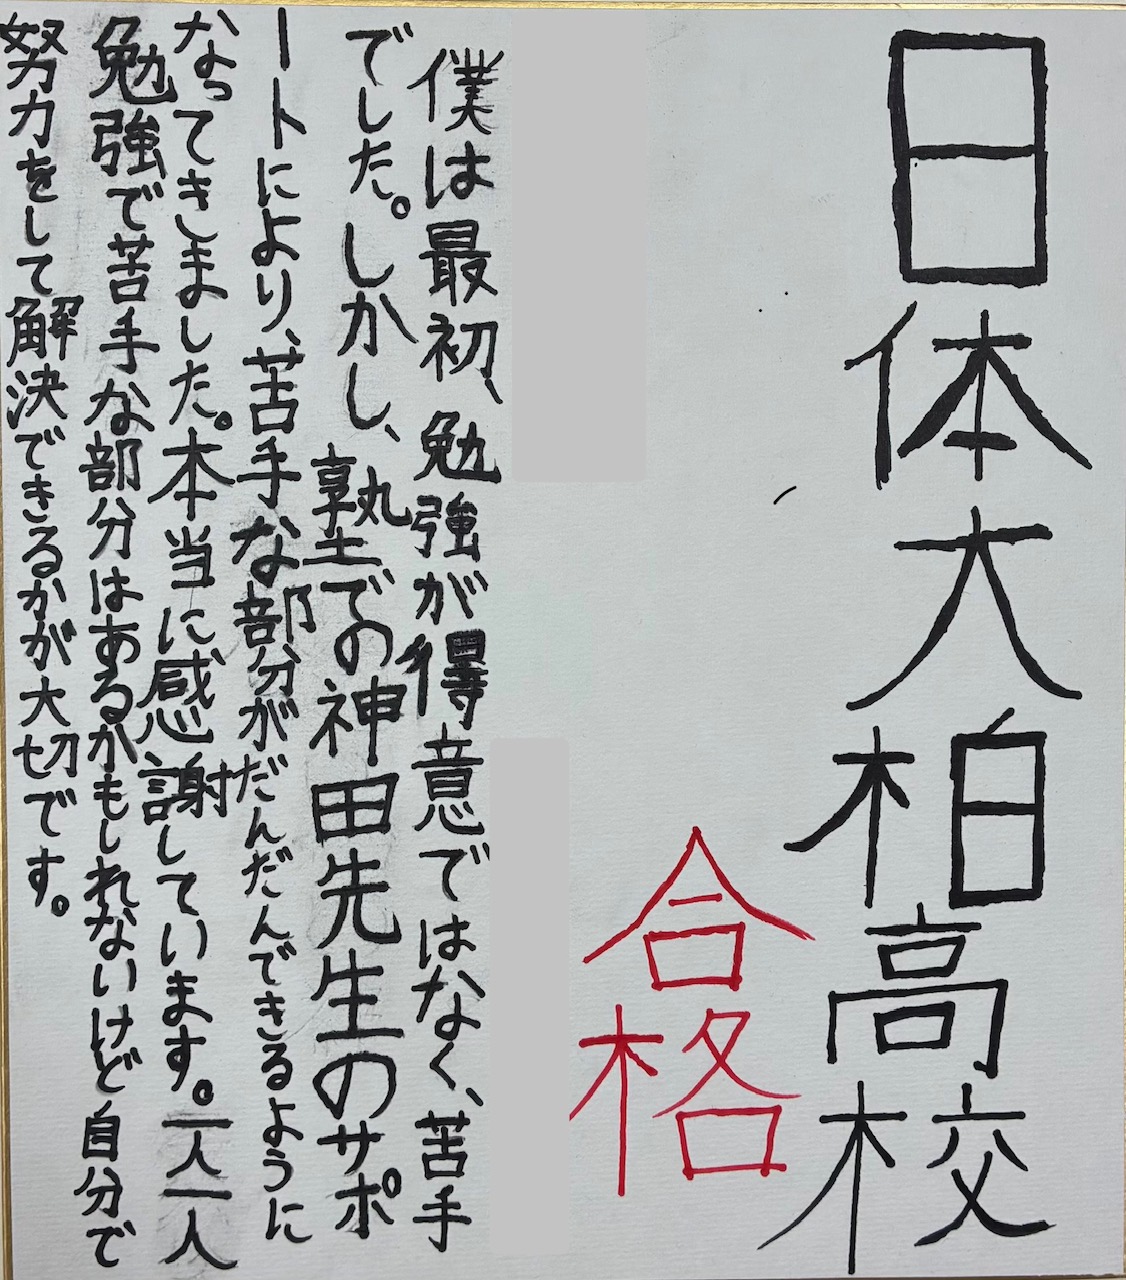 日体大柏高校
合格
僕は最初、勉強が得意ではなく、苦手
でした。しかし、塾での神田先生のサポ
ートにより、苦手な部分がだんだんできるように
なってきました。本当に感謝しています。一人一人
勉強で苦手な部分はあるかもしれないけど自分で
努力をして解決できるかが大切です。